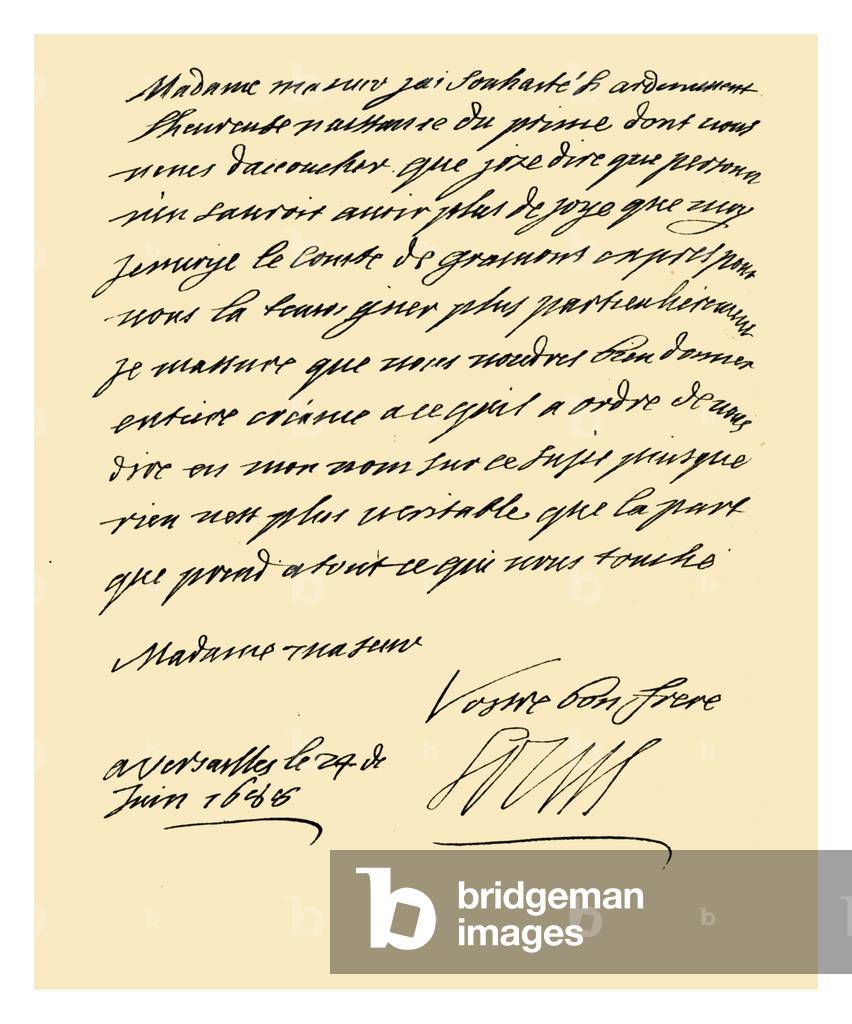 Madame ma seur jai souhaité si ardenment
lheureuse naissance du prince dont vous
venes daccoucher que joze dire que personne
nen sauroit avoir plus de joye que moy
jenvoye le comte de gramont expres pour
vous la tesmoigner plus particulierement
je massure que vous voudres bien donner
entiere creance a ce quil a ordre de vous
dire en mon nom sur ce sujet puisque
rien nest plus veritable que la part
que prend a tout ce qui vous touche
Madame ma seur
Vostre bon frere
Louis
a Versailles le 24 de
Juin 1688
b bridgeman
images